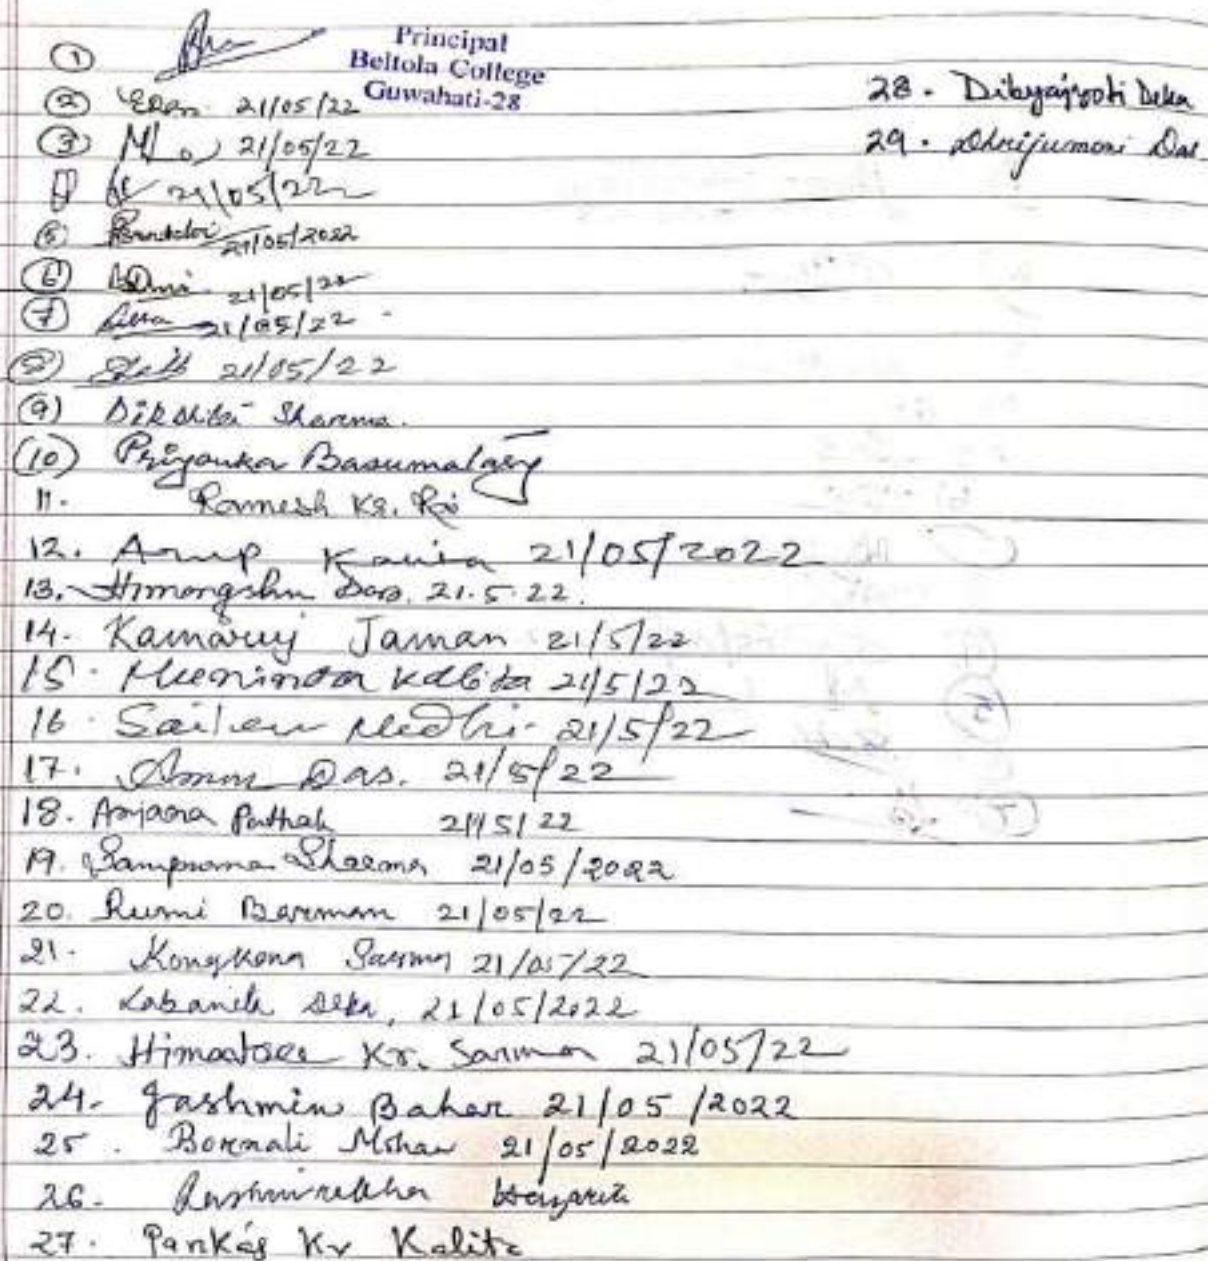 ①
Principal
Beltola College
Guwahati-28
② 21/05/22
③ 21/05/22
21/05/22
⑤ 21/05/2022
⑥ 21/05/22
⑦ 21/05/22
⑧ 21/05/22
⑨ Dikshita Sharma.
(10) Priyanka Basumatary
11. Ramesh Kr.
12. Anup 21/05/2022
13. Himongshu Das, 21.5.22.
14. Kamaruj Jaman 21/5/22
15. Kalita 21/5/22
16. Sailen Medhi 21/5/22
17. Das. 21/5/22
18. Pathak 21/5/22
19. Sharma 21/05/2022
20. Rumi Barman 21/05/22
21. Kongkona Sarma 21/05/22
22. Deka, 21/05/2022
23. Kr. Sarma 21/05/22
24. Jashmin Bahar 21/05/2022
25. Bornali 21/05/2022
26. Rashmirekha Hazarika
27. Kr Kalita
28. Dibyajyoti Deka
29. Dhrijumoni Das